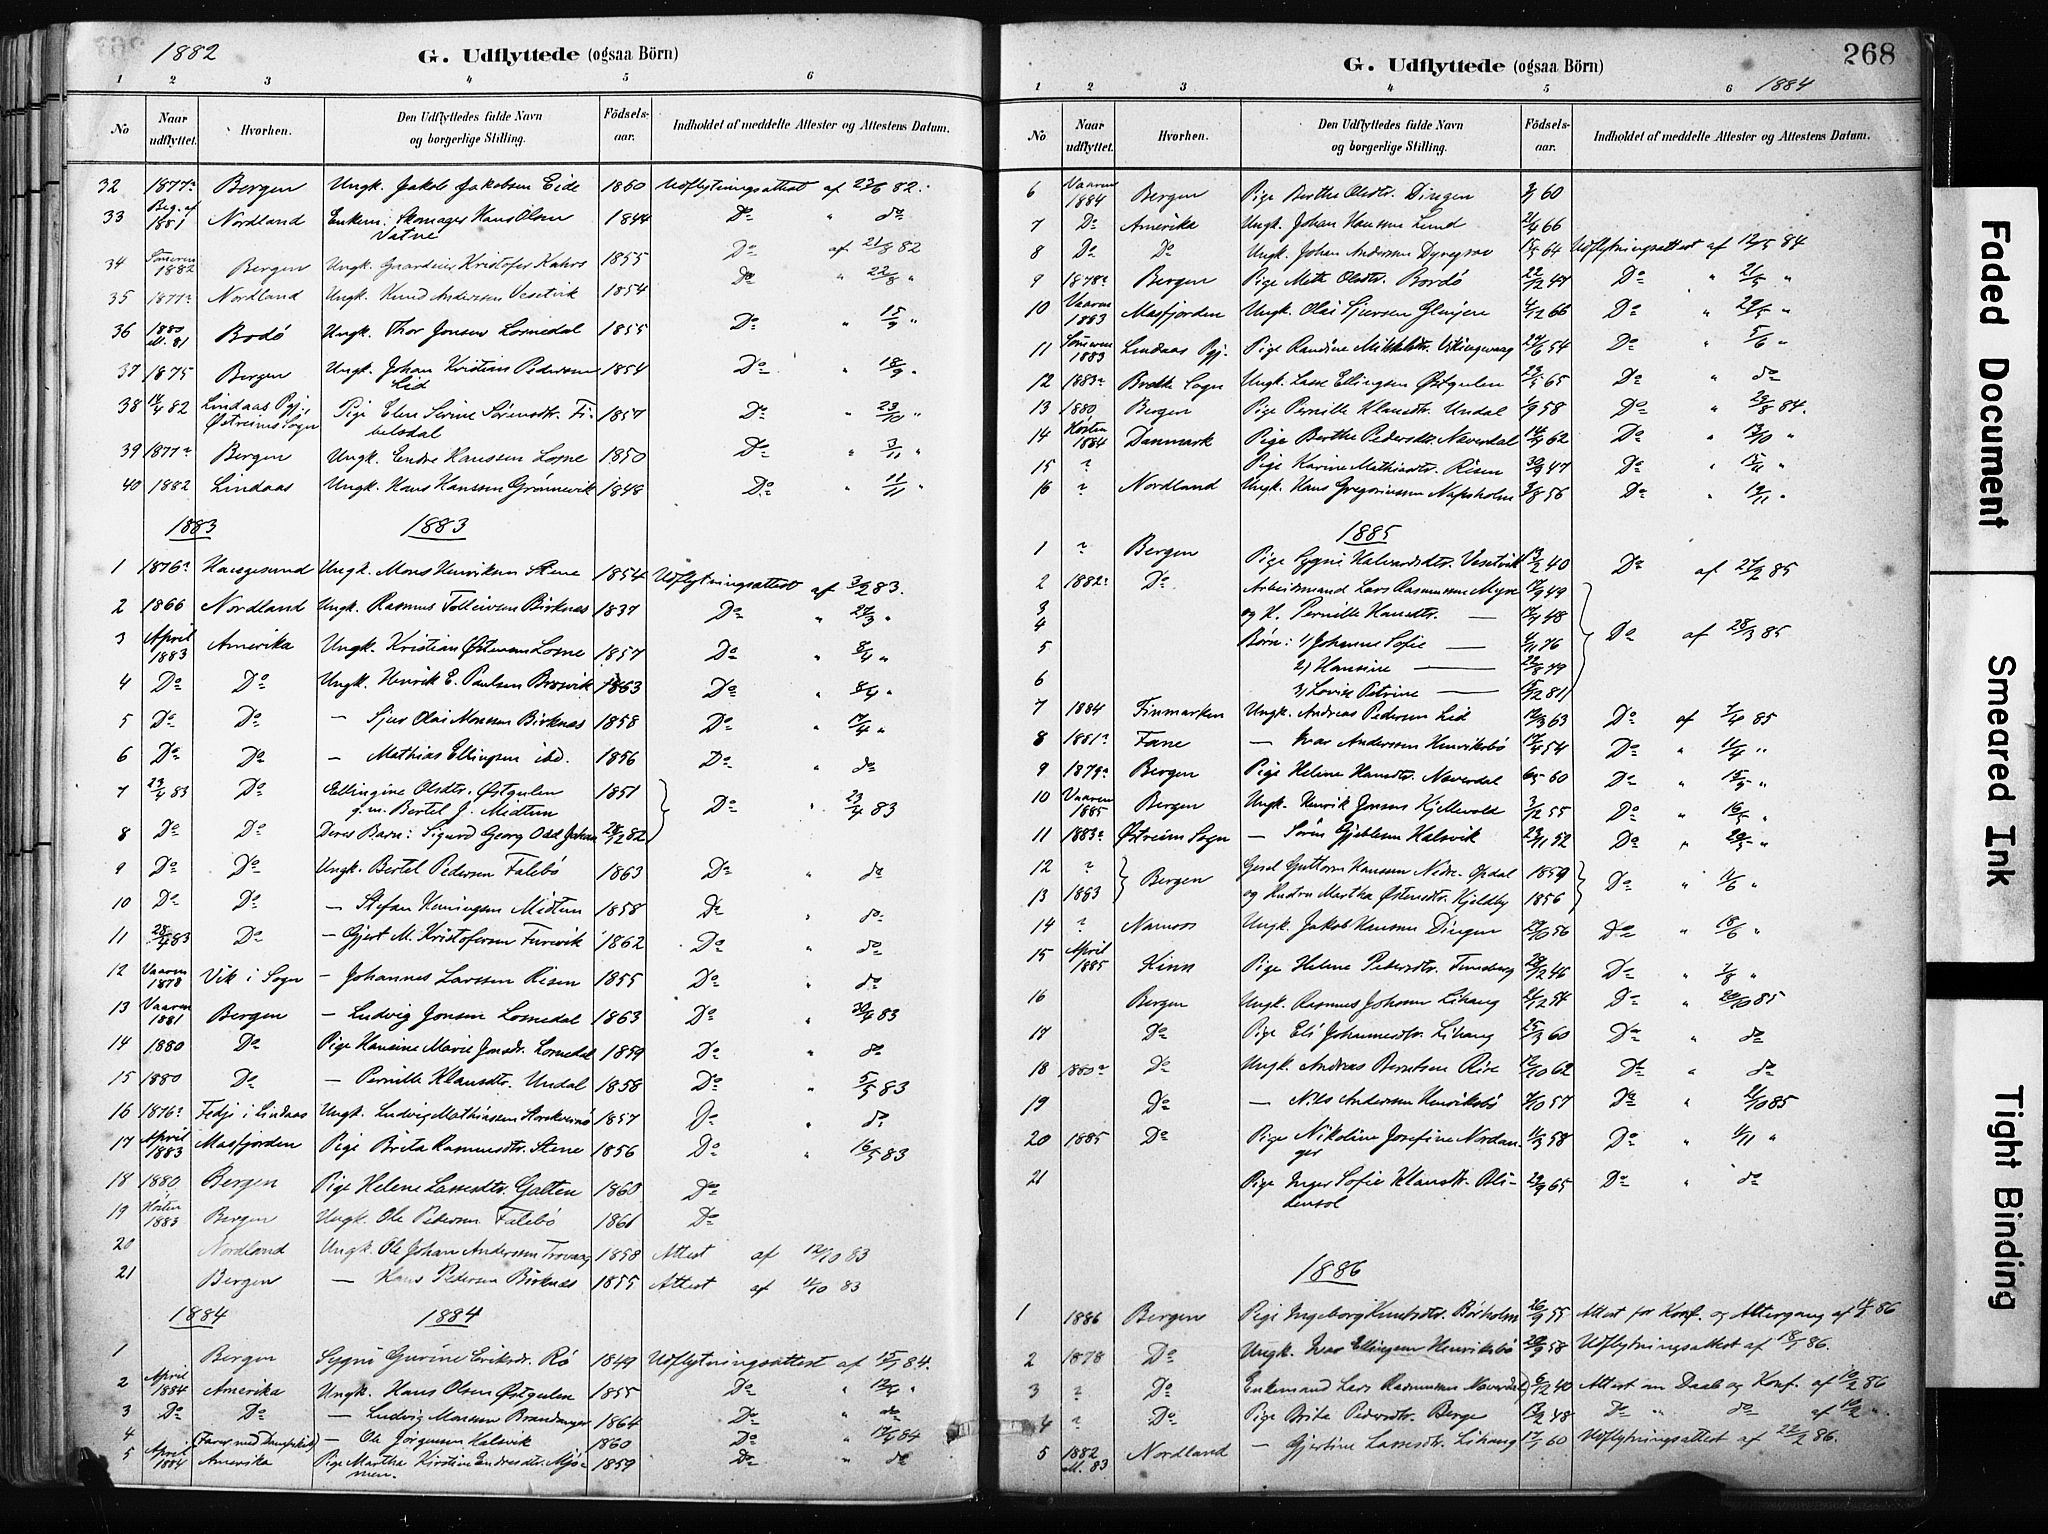 1882
G. Udflyttede (ogsaa Börn)
1 2 3 4 5 6
No Naar udflyttet. Hvorhen. Den Udflyttedes fulde Navn og borgerlige Stilling. Födsels-aar. Indholdet af meddelte Attester og Attestens Datum.
32 1877? Bergen Ungk. Jakob Jakobsen Eide 1860 Udflytningsattest af 23/6 82.
33 Beg. af 1881 Nordland Enkem. Skomager Hans Olsen Vatne 1844 Do " do
34 Sommeren 1882 Bergen Ungk. Gaardeier Kristofer Kahrs 1855 Do af 21/7 82
35 1877? Nordland Ungk. Knud Andersen Vesetvik 1854 Do " 22/8 "
36 1880 el. 81 Bodö Ungk. Thor Jonsen Lornedal 1855 Do " 15/9 "
37 1875 Bergen Ungk. Johan Kristian Pedersen Lid 1854 Do " 18/9 "
38 14/4 82 Lindaas Pgj. Østreims Sogn Pige Elen Serine Sörensdtr. Fibelsdal 1857 Do " 23/10 "
39 1877? Bergen Ungk. Endre Hanssen Lorne 1850 Do " 3/11 "
40 1882 Lindaas Ungk. Hans Hanssen Grönnevik 1848 Do " 11/11 "
1883 1883
1 1876? Haugesund Ungk. Mons Henriksen Stene 1854 Udflytningsattest af 3/2 83.
2 1866 Nordland Ungk. Rasmus Tolleivsen Birknæs 1837 Do " 27/3 "
3 April 1883 Amerika Ungk. Kristian Østensen Lorne 1857 Do " 8/4 "
4 Do Do Ungk. Henrik E. Paulsen Brosvik 1863 Do " 8/4 "
5 Do Do — Sjur Olai Monssen Birknæs 1858 Do " 17/4 "
6 Do Do — Mathias Ellingsen ibd. 1856 Do " do
7 23/4 83 Do Ellingine Olsdtr. Østgulen g. m. Bertel J. Midtun 1851 Do " 23/4 83
8 Do Do Deres Barn: Sigurd Georg Odd Johan 28/2 82
9 Do Do Ungk. Bertel Pedersen Falebö 1863 Do " do
10 Do Do — Stefan Henningsen Midtun 1858 Do " do
11 28/4 83 Do — Gjert M. Kristofersen Furevik 1862 Do " do
12 Vaaren 1878 Vik i Sogn — Johannes Larssen Risen 1855 Do " do
13 Vaaren 1881 Bergen — Ludvig Jonsen Lornedal 1863 Do " 30/4 83
14 1880 Do Pige Hansine Marie Jonsdr. Lornedal 1859 Do " do
15 1880 Do — Pernille Klausdtr. Undal 1858 Do " 5/5 83
16 1876? Fedje i Lindaas Ungk. Ludvig Mathiassen Storekvernö 1857 Do " do
17 April 1883 Masfjorden Pige Brita Rasmusdtr. Stene 1856 Do " 16/5 83
18 1880 Bergen Pige Helene Lassesdtr. Galten 1860 Do
19 Hösten 1883 Bergen Ungk. Ole Pedersen Falebö 1861 Do
20 Nordland Ungk. Ole Johan Andersen Trovaag 1858 Attest af 12/10 83
21 Bergen — Hans Pedersen Birknæs 1855 Attest af 11/10 83
1884 1884
1 Bergen Sygni Gurine Eriksdr. Rö 1849 Udflytningsattest af 15/1 84.
2 April 1884 Amerika Ungk. Hans Olsen Østgulen 1855 Do " 12/4 "
3 Do Do — Ludvig Monssen Brandanger 1864 Do " do
4 (Farer med Dampskib) — Ole Jörgensen Halsvik 1860 Do " 17/4 84
5 April 1884 Amerika Pige Martha Kirstine Endresdtr. Mjömen. 1859 Do " do
268
G. Udflyttede (ogsaa Börn)
1884
1 2 3 4 5 6
No Naar udflyttet. Hvorhen. Den Udflyttedes fulde Navn og borgerlige Stilling. Födsels-aar. Indholdet af meddelte Attester og Attestens Datum.
6 Vaaren 1884 Bergen Pige Berthe Olsdtr. Dingen 60
7 Do Amerika Ungk. Johan Hanssen Lund 21/4 66
8 Do Do Ungk. Johan Andersen Dyregrov 15/5 64 Udflytningsattest af 12/5 84
9 1878? Bergen Pige Mette Olsdtr. Bordö 22/2 47 Do " 21/5 "
10 Vaaren 1883 Masfjorden Ungk. Olai Sjursen Glenjen 4/12 66 Do " 29/5 "
11 Sommeren 1883 Lindaas Pgj. Pige Randine Mikkelsdtr. Vikingevaag 24/6 54 Do " 5/6 "
12 1883? Brekke Sogn Ungk. Lasse Ellingsen Østgulen 23/5 65 Do " do
13 1880 Bergen Pige Pernille Klausdtr. Undal 1/9 58 Do " 23/8 84.
14 Hösten 1884 Danmark Pige Berthe Pedersdtr. Naverdal 14/9 62 Do " 13/10 "
15 ? Pige Karine Mathiasdtr. Risen 30/9 47 Do " 15/11 "
16 ? Nordland Ungk. Hans Gregoriussen Napsholm 3/8 56 Do " 19/11 "
1885
1 ? Bergen Pige Sygni Halvardsdtr. Vesetvik 13/2 40 Do af 27/2 85
2 1882? Do Arbeidsmand Lars Rasmussen Myre 17/9 49
3 og H. Pernille Hansdtr. — 17/4 48
4 Börn: 1) Johanne Sofie — 4/11 76 Do af 28/3 85
5 2) Hansine — 22/8 79
6 3) Lovise Petrine — 15/12 81
7 1884 Finmarken Ungk. Andreas Pedersen Lid 12/3 63 Do af 7/4 85
8 1881? Fane — Ivar Andersen Henriksbö 17/4 54 Do " 11/4 "
9 1879? Bergen Pige Helene Hansdtr. Naverdal 60 Do "
10 Vaaren 1885 Bergen Ungk. Henrik Jonsen Kjellevold 3/12 55 Do " 16/5 "
11 1883? Østreim Sogn — Sören Gjeblesen Halsvik 23/11 52 Do " 20/5 "
12 ? Bergen Gesel Guttorm Hanssen Nedre Opdal 1859 Do " 11/6 "
13 1883 og Hustru Martha Østensdtr. Kjeldby 1856
14 ? Namsos Ungk. Jakob Hanssen Dingen 29/10 56 Do " 18/6 "
15 April 1885 Kinn Pige Helene Pedersdtr. Tunsberg 28/12 46 Do " 1/8 "
16 Bergen Ungk. Rasmus Johansen Lihaug 21/12 54 Do " 20/10 85
17 Do Pige Eli Johannesdtr. Lihaug 25/3 60 Do " do
18 1880? Do Ungk. Andreas Berntsen Rise 12/10 62 Do " do
19 Do — Nils Andersen Henriksbö 7/10 57 Do " 21/10 85
20 1885 Do Pige Nikoline Josefine Nordanger 11/3 58 Do " 4/11 "
21 Pige Inger Sofie Klausdtr. Blidensol 29/9 65 Do " do
1886
1 1886 Bergen Pige Ingeborg Knudsdtr. Börholm 26/9 55 Attest for Konf. og Altergang af 14/1 86
2 1878 Do Ungk. Ivar Ellingsen Henriksbö 29/9 58 Udflytningsattest af 18/1 86.
3 ? Do Enkemand Lars Rasmussen Naverdal 6/12 40 Attest om Daab og Konf. af 10/2 86
4 ? Do Pige Brita Pedersdtr. Berge 13/2 48 Do " do af 10/2 ".
5 1882 el. 83 Nordland — Gjertine Lassesdtr. Lihaug 17/1 60 Udflytningsattest af 22/2 86.
Faded Document
Smeared Ink
Tight Binding